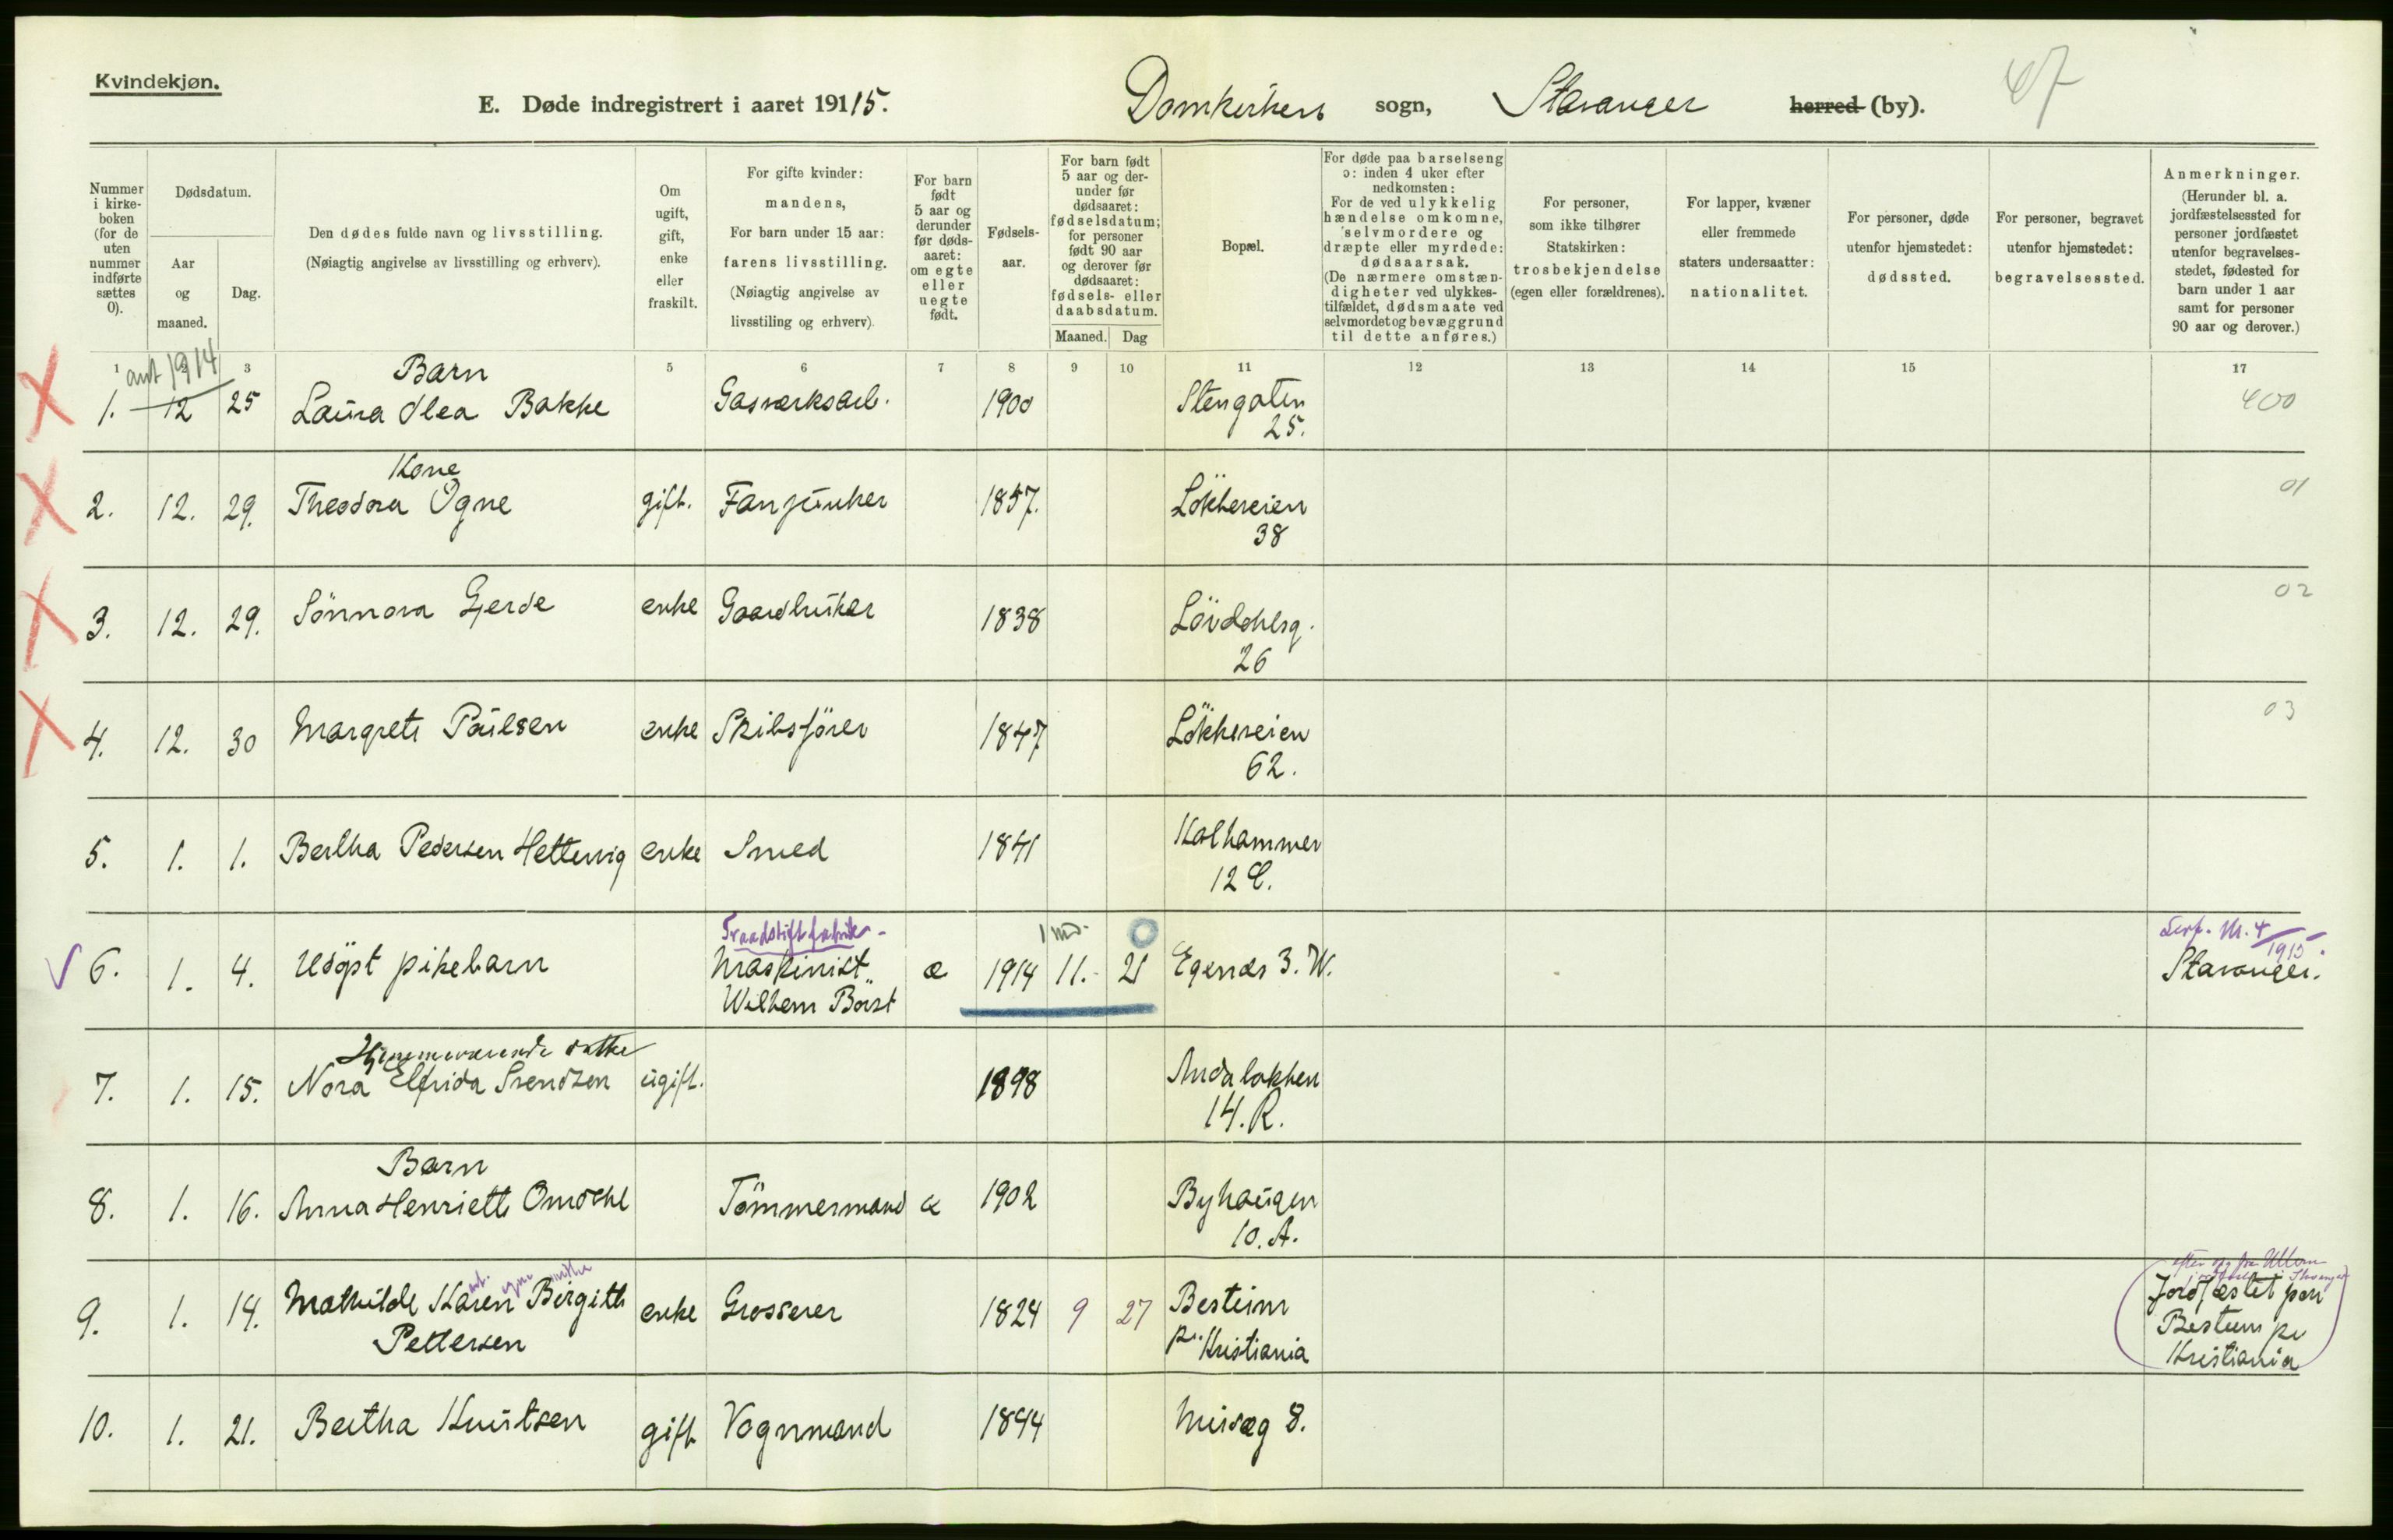 Kvindekjøn.
E. Døde indregistrert i aaret 19115. Domkirken sogn, Stavanger herred (by). 47
Nummer i kirkeboken (for de uten nummer indførte sættes 0).
Dødsdatum.
Aar og maaned.
Dag.
Den dødes fulde navn og livsstilling.
(Nøiagtig angivelse av livsstilling og erhverv).
Om ugift, gift, enke eller fraskilt.
For gifte kvinder: mandens,
For barn under 15 aar: farens livsstilling.
(Nøiagtig angivelse av livsstiling og erhverv).
For barn født 5 aar og derunder før dødsaaret: om egte eller uegte født.
Fødselsaar.
For barn født 5 aar og derunder før dødsaaret: fødselsdatum; for personer født 90 aar og derover før dødsaaret: fødsels- eller daabsdatum.
Maaned. Dag
Bopæl.
For døde paa barselseng ɔ: inden 4 uker efter nedkomsten:
For de ved ulykkelig hændelse omkomne, selvmordere og dræpte eller myrdede: dødsaarsak.
(De nærmere omstændigheter ved ulykkestilfældet, dødsmaate ved selvmordet og bevæggrund til dette anføres.)
For personer, som ikke tilhører Statskirken: trosbekjendelse (egen eller forældrenes).
For lapper, kvæner eller fremmede staters undersaatter: nationalitet.
For personer, døde utenfor hjemstedet: dødssted.
For personer, begravet utenfor hjemstedet: begravelsessted.
Anmerkninger.
(Herunder bl. a. jordfæstelsessted for personer jordfæstet utenfor begravelsesstedet, fødested for barn under 1 aar samt for personer 90 aar og derover.)
1 3 5 6 7 8 9 10 11 12 13 14 15 17
1914
Barn
1. 12 25 Laura Olea Bakke Gasverksarb. 1900 Stengaten 25. 400
Kone
2. 12. 29. Theodora Ogne gift. Fanejunker 1857. Løkkeveien 38 01
3. 12. 29. Sönnova Gjerde enke Gaardbruker 1838 Lövdahlsg. 26 02
4. 12. 30 Margrete Paulsen enke Skibsförer 1847 Løkkeveien 62. 03
5. 1. 1. Bertha Pedersen Hettervig enke Smed 1841 Kalhammer 12 C.
Traadstiftfabrik
1 md. 0
6. 1. 4. Udöpt pikebarn Maskinist Wilhem Börst æ 1914 11. 21 Egenes 3. W. 1915 Stavanger.
Hjemmeværende datter
7. 1. 15. Nora Elfrida Svendsen ugift. 1898 Andaløkken 14. R.
Barn
8. 1. 16. Anna Henriette Omdahl Tömmermand æ 1902 Byhaugen 10. A.
9. 1. 14. Mathilde Karen Birgitte Pettersen enke Grosserer 1824 9 27 Bestum pr. Kristiania Jordfæstet paa Bestum pr Kristiania
10. 1. 21. Bertha Knutsen gift Vognmand 1844 8.